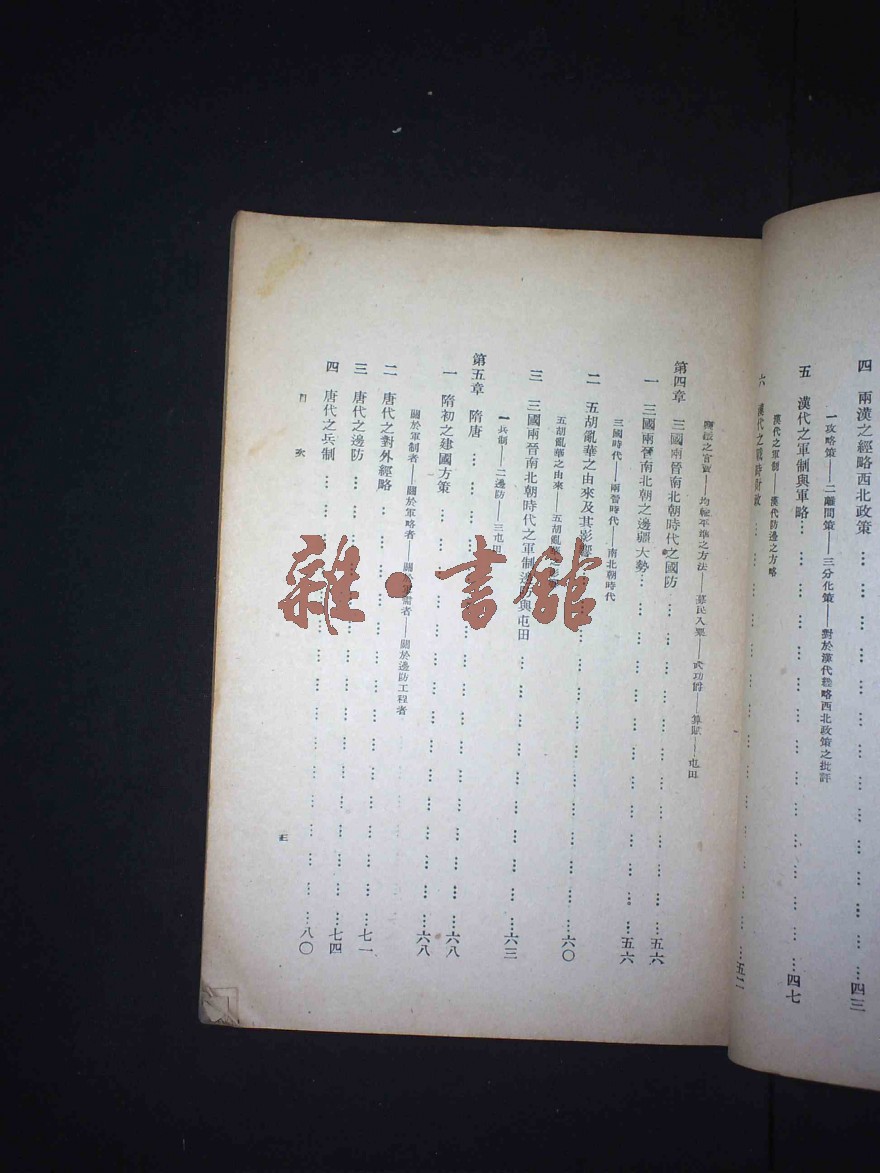 四 兩漢之經略西北政策…………四三
一攻略策——二離間策——三分化策——對於漢代經略西北政策之批評
五 漢代之軍制與軍略…………四七
漢代之軍制——漢代防邊之方略
六 漢代之戰時財政…………五二
之官賣——均輸平準之方法——募民入粟——武功爵——算賦——屯田
第四章 三國兩晉南北朝時代之國防…………五六
一 三國兩晉南北朝之邊疆大勢…………五六
三國時代——兩晉時代——南北朝時代
二 五胡亂華之由來及其影響…………六〇
五胡亂華之由來——五胡亂華之
三 三國兩晉南北朝時代之軍制邊防與屯田…………六三
一兵制——二邊防——三屯田
第五章 隋唐…………六八
一 隋初之建國方策…………六八
關於軍制者——關於軍略者——關於者——關於邊防工程者
二 唐代之對外經略…………七一
三 唐代之邊防…………七四
四 唐代之兵制…………八〇
目 次
三
雜·書館